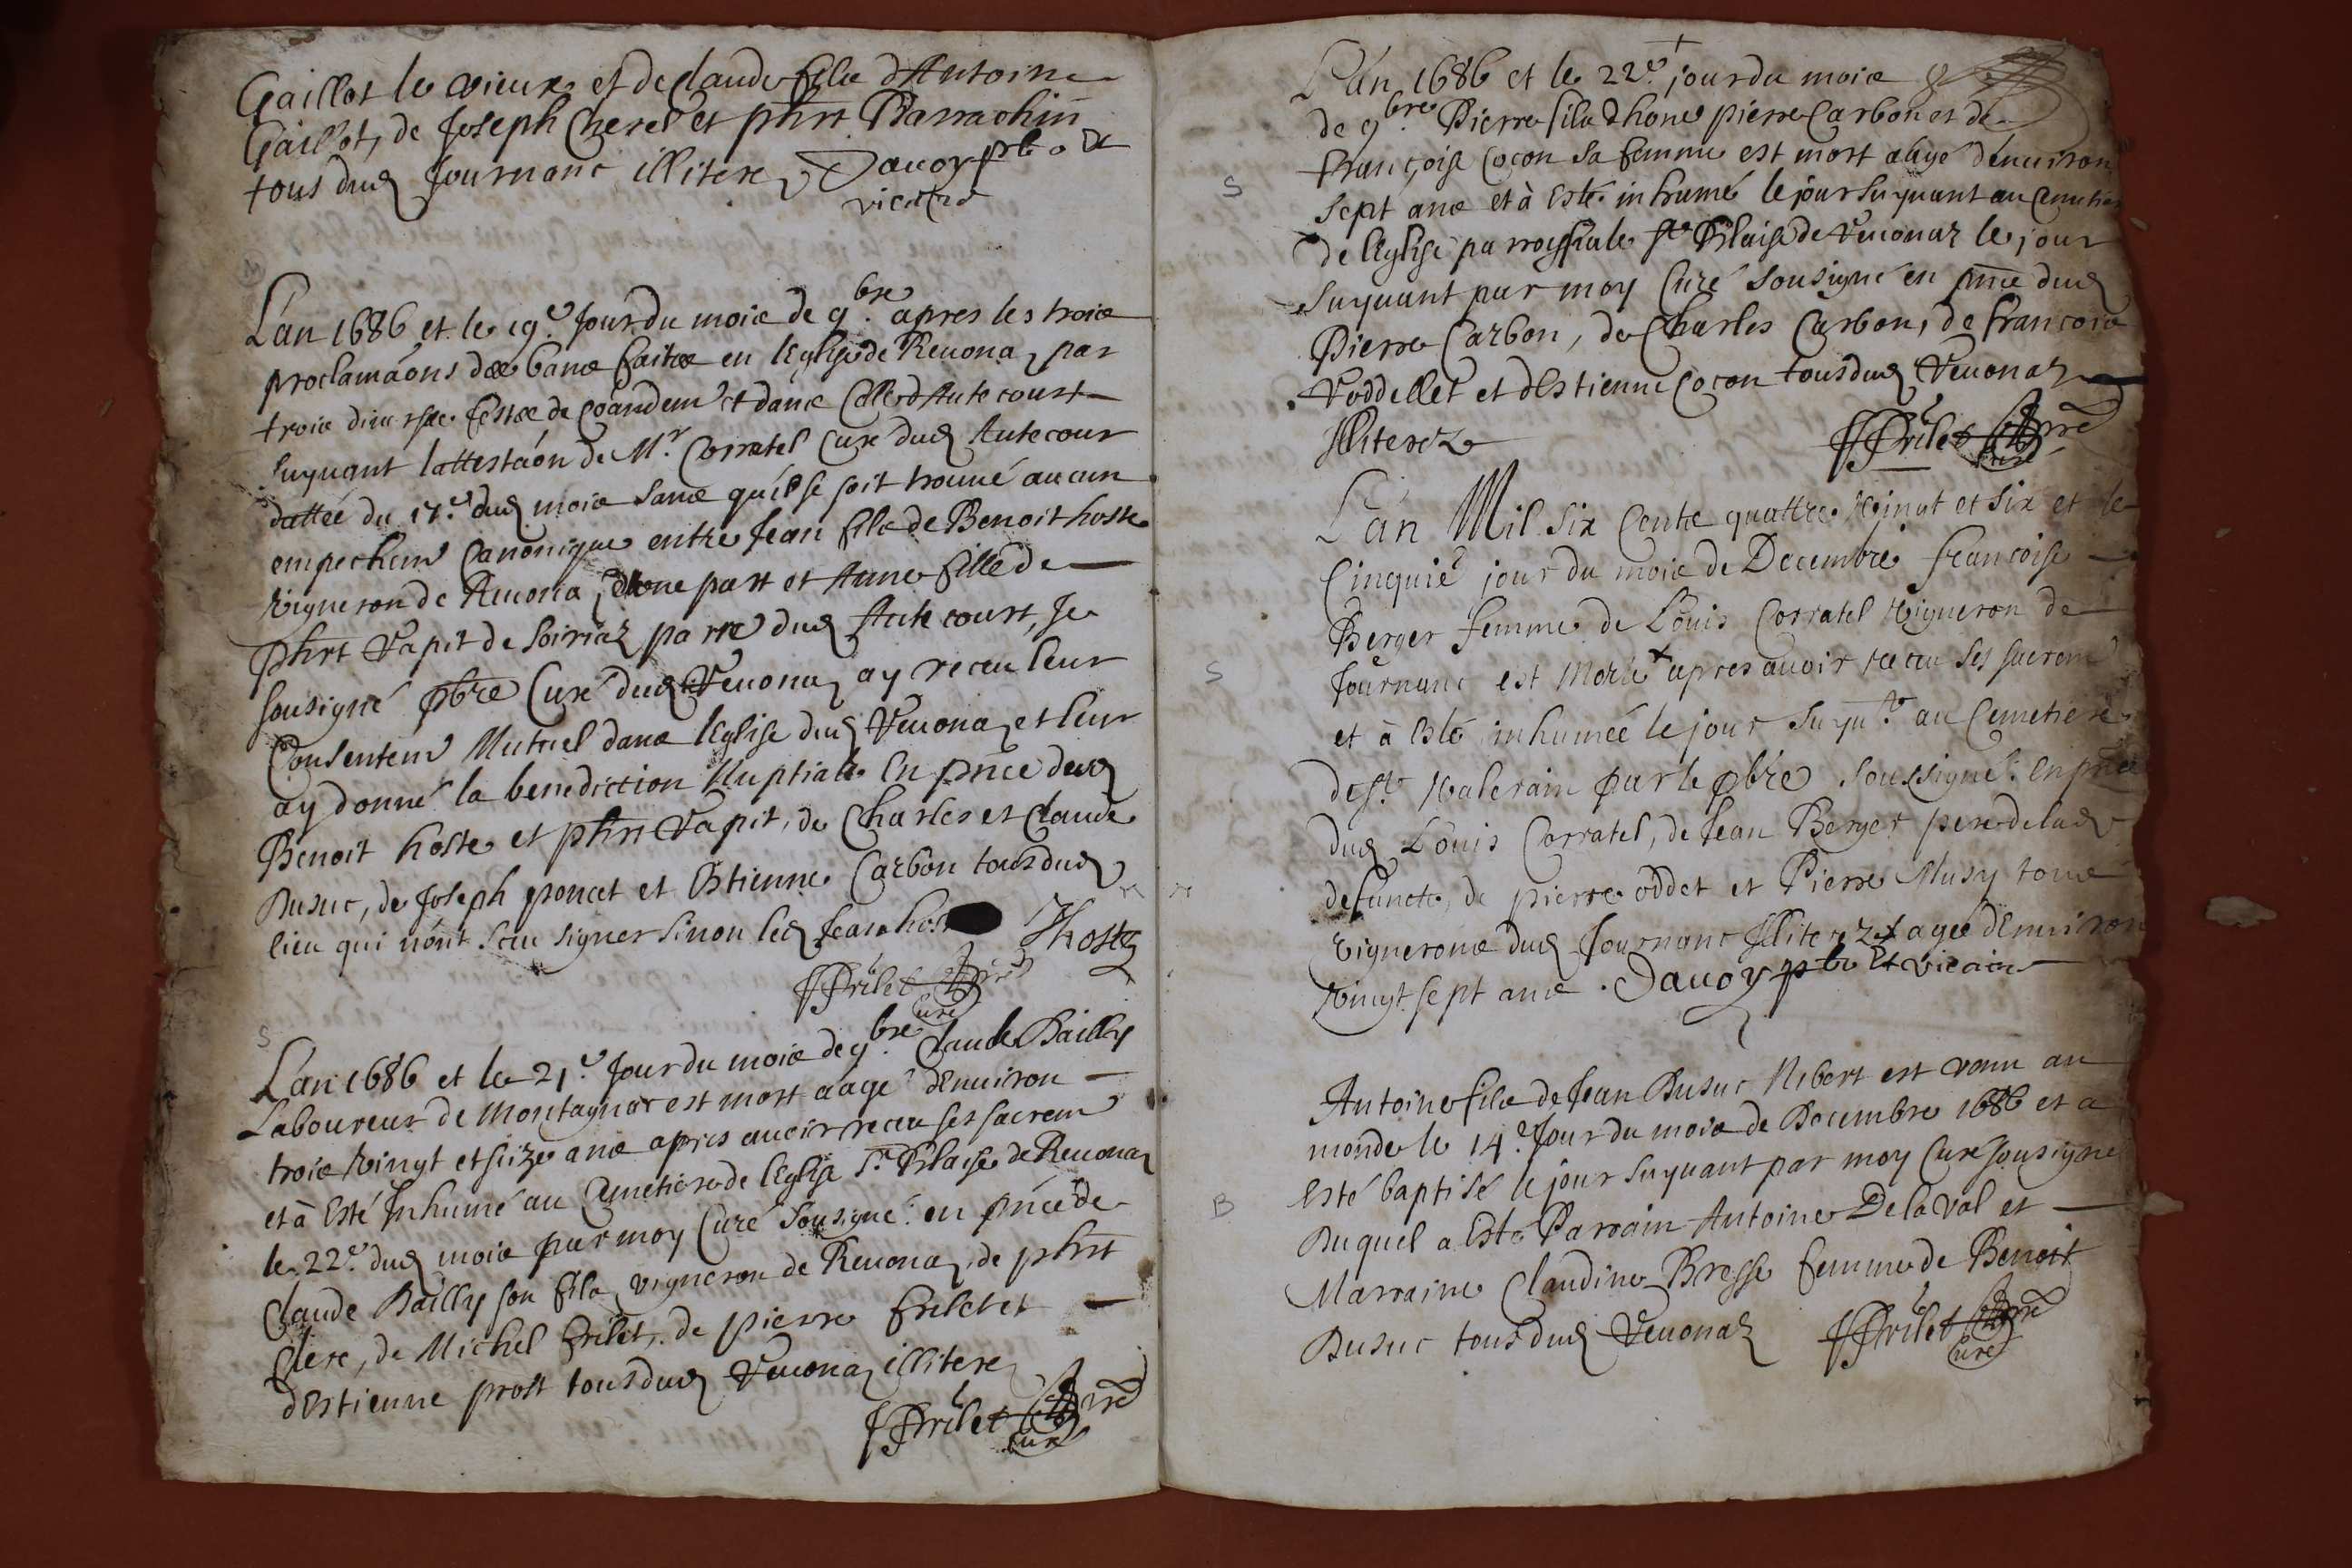 Gaillot le vieux et de Claude fils d'Antoine
Gaillot, de Joseph Cherel et phrt Barrachin
tous dud Journanc illiterez Dauoy pbr et
vicaire
L'an 1686 et le 19e Jour du mois de 9bre apres les trois
proclamaóns des bans faites en l'Eglise de Reuonaz par
trois diuerses festes de Coandemt et dans Celle d'Autecourt
suyuant l'attestaón de Mr Corratel Curé dud Autecour
dattée du 17e dud mois sans qu'il se soit trouué aucun
empechemt Canonique entre Jean fils de Benoit hoste
vigneron de Reuona, d'une part et Anne fille de
phrt Vapit de Soiriaz parre dud Autecourt, Je
sousigné pbre Curé dud Reuonaz ay receu leur
Consentemt Mutuel dans l'Eglise dud Reuonaz et leur
ay donné la benediction Nuptiale En pnce desd
Benoit hoste et phrt Vapit, de Charles et Claude
Dusuc, de Joseph poncet et Estienne Carbon tous dud
lieu qui n'ont sceu signer sinon led Jean hos J hoste
FFrilet pre
Curé
S
L'an 1686 et le 21e Jour du mois de 9bre Claude Bailly
Laboureur de Montagnat est mort aagé d'enuiron
trois vingt et seize ans apres auoir receu ses sacremt
et à Esté Inhumé au Cemetiere de l'Eglise St Blaise de Reuonaz
le 22e dud mois par moy Curé sousigné en pnce de
Claude Bailly son fils, vigneron de Reuonaz, de phrt
Clere, de Michel frilet, de pierre frilet et
d'Estienne prost tous dud Reuonaz illiterez
FFrilet pre
Curé
L'an 1686 et le 22e jour du mois
de 9bre Pierre fils d'hone pierre Carbon et de
françoise Cocon sa femme est mort aagé d'enuiron
S
sept ans et à Esté inhumé le jour suyuant au Cemetiere
de l'Eglise parroissiale St Blaise de Reuonaz le jour
suyuant par moy Curé sousigné en pnce dud
Pierre Carbon, de Charles Carbon, de françois
Voddellet et d'Estienne Cocon tous dud Reuonaz
Illiterez
FFrilet pre
Curé
L'an Mil six Cents quattre vingt et six et le
Cinquiè jour du mois de Decembre françoise
Berger femme de Louis Corratel vigneron de
S
Journanc est Morte x apres auoir receu ses sacremt
et à Esté inhumée le jour suyut au Cemetiere
de St Valerain par le pbre soussigné: En pnce
dud Louis Corratel, de Jean Berger pere de lad
defuncte, de pierre oddet et Pierre Musy tous
vignerons dud Journanc Illiterez x agée d'Enuiron
vingt sept ans. Dauoy pbr Et vicaire
Antoine fils de Jean Dusuc Nibert est venu au
monde le 14e Jour du mois de Decembre 1686 et a
Esté baptisé le jour suyuant par moy Curé sousigné
B
Duquel a Esté Parrain Antoine Delaval et
Marraine Claudine Bresse femme de Benoit
Dusuc tous dud Reuonaz FFrilet pre
Curé